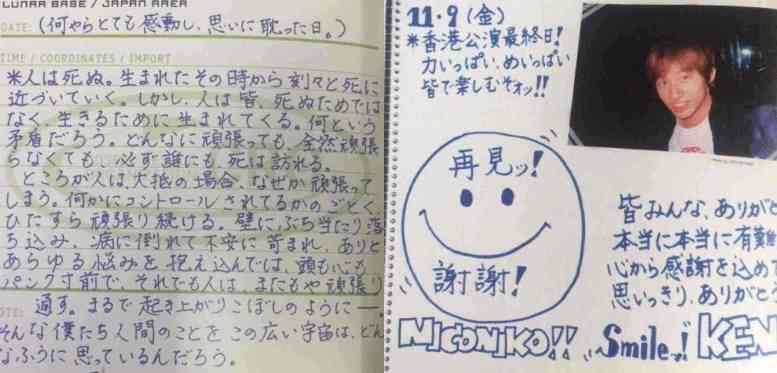 LUNAR BASE / JAPAN AREA
DATE: (何やらとても感動し、思いに耽った日。)
TIME / COORDINATES / IMPORT
*人は死ぬ。生まれたその時から刻々と死に
近づいていく。しかし、人は皆、死ぬためでは
なく、生きるために生まれてくる。何という
矛盾だろう。どんなに頑張っても、全然頑張
らなくても、必ず誰にも死は訪れる。
ところが人は、大抵の場合、なぜか頑張って
しまう。何かにコントロールされてるかのごとく、
ひたすら頑張り続ける。壁にぶち当たり落
ち込み、病に倒れて不安に苛まれ、ありと
あらゆる悩みを抱え込んでは、頭も心も
パンク寸前で、それでも人は、またもや頑張り
通す。まるで起き上がりこぼしのように—。
そんな僕たち人間のことをこの広い宇宙は、どん
なふうに思っているんだろう。
11.9(金)
*香港公演最終日!
力いっぱい、めいっぱい
皆で楽しむぞォッ!!
再見ッ!
謝謝!
皆みんな、ありがと
本当に本当に有難
心から感謝を込めて
思いっきり、ありがと
NICONIKO!! Smile! KEN